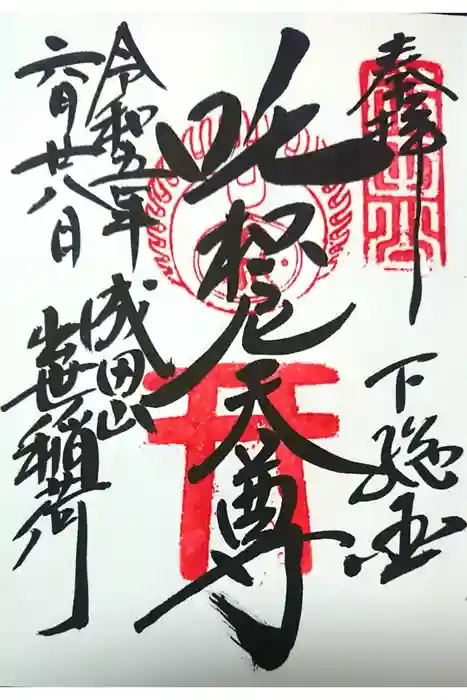 奉拝
下総国
吒枳尼天尊
成田山
出世稲荷
令和五年
六月廿八日